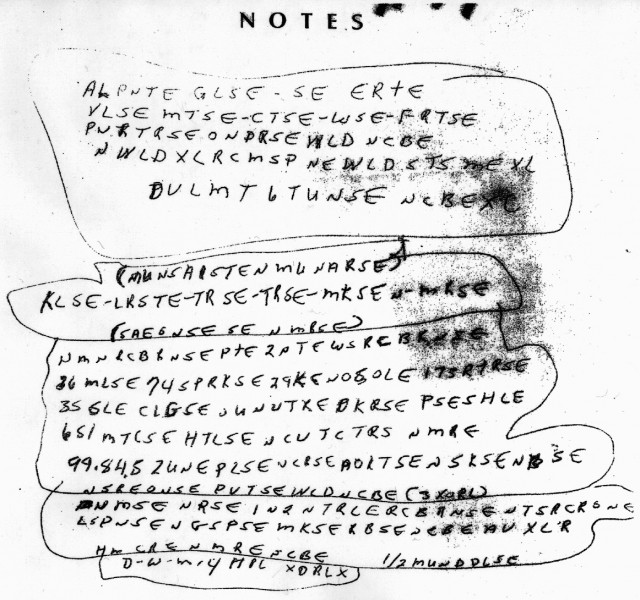 NOTES
ALPNTE GLSE - SE ERTE
VLSE MTSE-CTSE-WSE-FRTSE
PNRTRSE ONDRSE WLD NCBE
NWLDXLRCMSP NEWLDSTSMEXL
DULMT6TUNSE NCBEXC
(MUNSARSTEN MUNARSE)
KLSE-LRSTE-TRSE-TRSE-MKSEN-MRSE
(SAEGNSE SE NMRSE)
NMNRCBRNSE PTE2PTEWSRCBRNSE
36 MLSE 74SPRKSE 29KENOSOLE 173RTRSE
35 GLE CLGSE UNUTXE DKRSE PSESHLE
651 MTCSE HTLSE NCUTCTRS NMRE
99.84.52UNEPLSE NCRSE AOLTSENSKSENBSE
NSREONSE PUTSE WLD NCBE (3XORL)
NMSE NRSE IN2NTRLERCBRNSE NTSRCRONE
LSPNSE NGSPSE MKSERBSE NCBE AUXLR
HM CRE NMRE NCBE 1/2 MUNDDLSE
D-W-M-4 HPL XDRLX